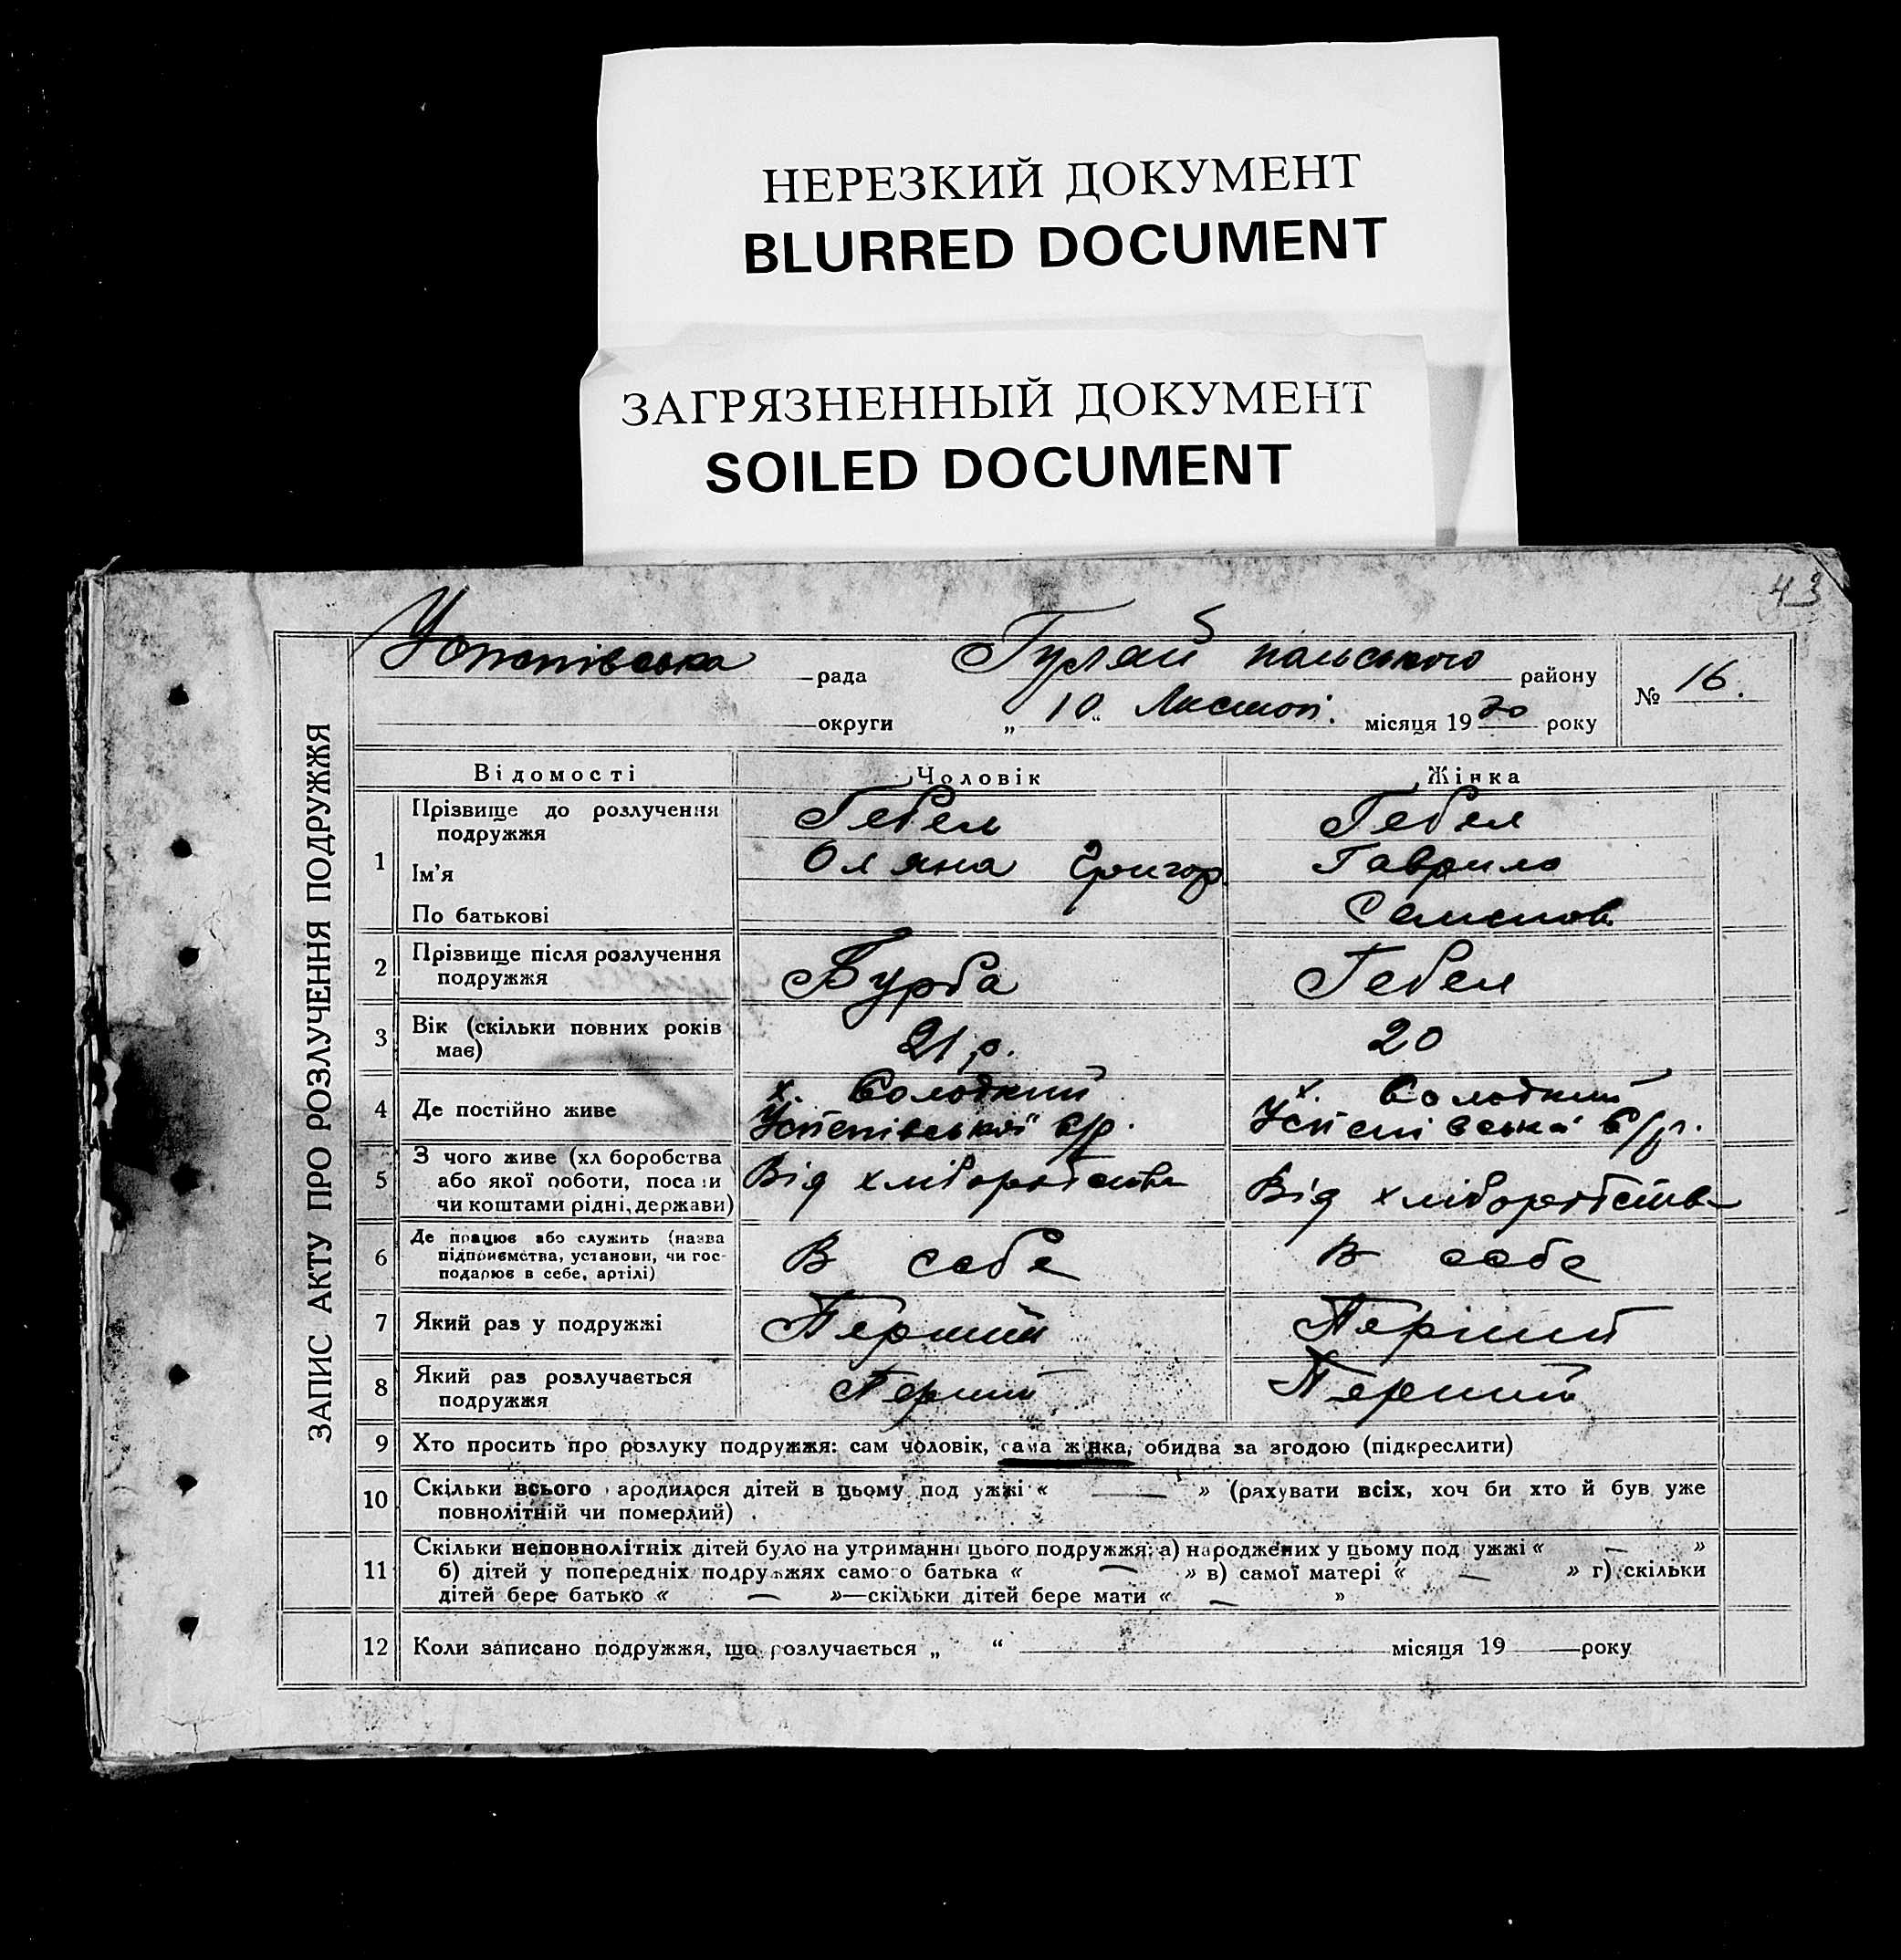 НЕРЕЗКИЙ ДОКУМЕНТ
BLURRED DOCUMENT
ЗАГРЯЗНЕННЫЙ ДОКУМЕНТ
SOILED DOCUMENT
43
Успенівська рада Гуляй польського району № 16.
округи „ 10 “ Листоп. місяця 1930 року
ЗАПИС АКТУ ПРО РОЗЛУЧЕННЯ ПОДРУЖЖЯ
Відомості Чоловік Жінка
1 Прізвище до розлучення Гебель Гебел
подружжя
Ім'я Оляна Григор. Гаврило
По батькові Семенов
2 Прізвище після розлучення Бурба Гебел
подружжя
3 Вік (скільки повних років 21 р. 20
має)
4 Де постійно живе х. Солодкий х. Солодкий
Успенівської с/р. Успенівської с/р.
5 З чого живе (хл боробства Від хліборобства Від хліборобства
або якої роботи, поса и
чи коштами рідні, держави)
6 Де працює або служить (назва В себе В себе
підприємства, установи, чи гос-
подарює в себе, артілі)
7 Який раз у подружжі Перший Перший
8 Який раз розлучається Перший Перший
подружжя
9 Хто просить про розлуку подружжя: сам чоловік, сама жінка, обидва за згодою (підкреслити)
10 Скільки всього народилося дітей в цьому под ужжі « — » (рахувати всіх, хоч би хто й був уже
повнолітній чи померлий)
11 Скільки неповнолітніх дітей було на утриманні цього подружжя: а) народжених у цьому под ужжі « — »
б) дітей у попередніх подружжях самого батька « — » в) самої матері « — » г) скільки
дітей бере батько « — »—скільки дітей бере мати « — »
12 Коли записано подружжя, що розлучається „ “ місяця 19 року